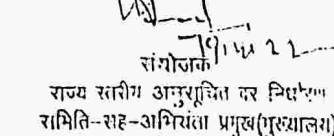 संयोजक
राज्य स्तरीय अनुसूचित दर निर्धारण
समिति-सह-अभियंता प्रमुख(मुख्यालय)